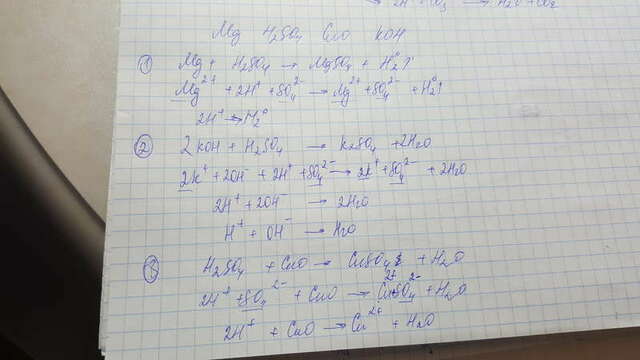 Mg H₂SO₄ CuO KOH
① Mg + H₂SO₄ → MgSO₄ + H₂⁰↑
Mg²⁺ + 2H⁺ + SO₄²⁻ → Mg²⁺ + SO₄²⁻ + H₂⁰↑
2H⁺ → H₂⁰
② 2KOH + H₂SO₄ → K₂SO₄ + 2H₂O
2K⁺ + 2OH⁻ + 2H⁺ + SO₄²⁻ → 2K⁺ + SO₄²⁻ + 2H₂O
2H⁺ + 2OH⁻ → 2H₂O
H⁺ + OH⁻ → H₂O
③ H₂SO₄ + CuO → CuSO₄ + H₂O
2H⁺ + SO₄²⁻ + CuO → Cu²⁺ SO₄²⁻ + H₂O
2H⁺ + CuO → Cu²⁺ + H₂O